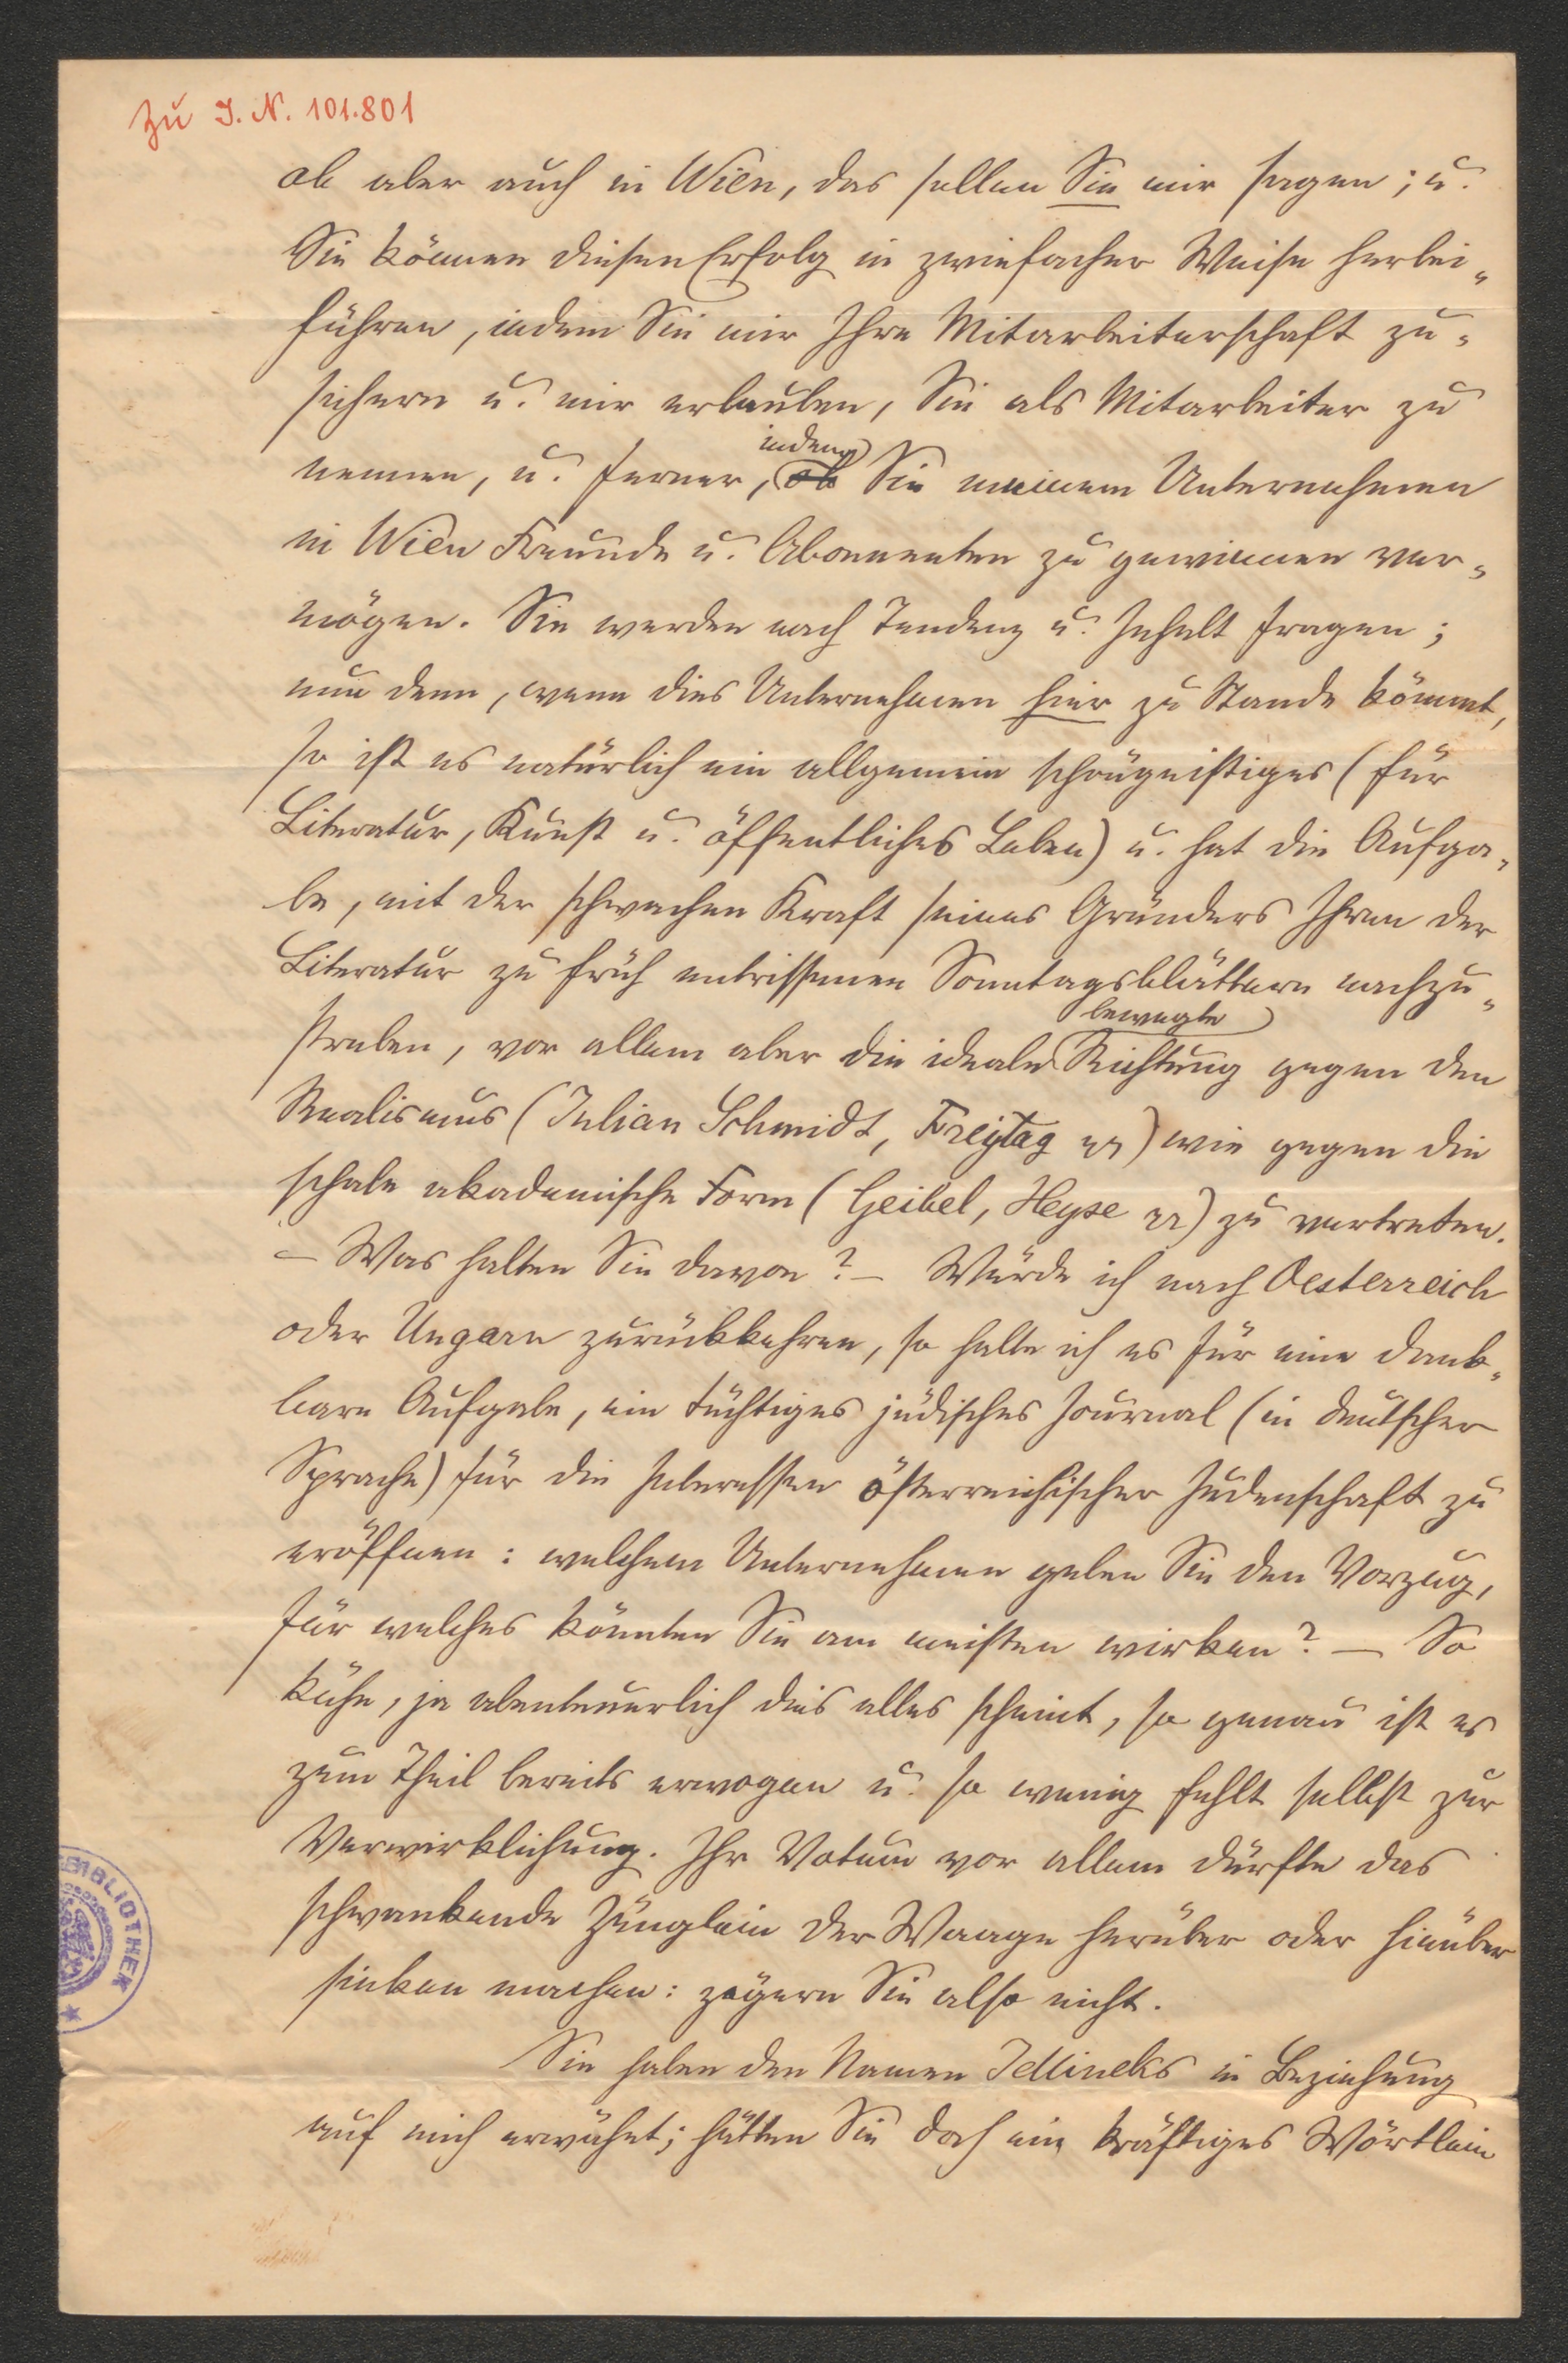 Zu I. N. 101.801
ob aber auch in Wien, das sollen Sie mir sagen; u.
Sie können diesen Erfolg in zwiefacher Weise herbei-
führen, indem Sie mir Ihre Mitarbeiterschaft zu-
sichern u. mir erlauben, Sie als Mitarbeiter zu
indem
nennen, u. ferner, ob Sie meinem Unternehmen
in Wien Freunde u. Abonnenten zu gewinnen ver-
mögen. Sie werden nach Tendenz u. Inhalt fragen;
nun denn, wenn dies Unternehmen hier zu Stande kömmt,
so ist es natürlich ein allgemein schöngeistiges (für
Literatur, Kunst u. öffentliches Leben) u. hat die Aufga-
be, mit der schwachen Kraft seines Gründers Ihren der
Literatur zu früh entrissenen Sonntagsblättern nachzu-
bewegte
streben, vor allem aber die ideale Richtung gegen den
Realismus (Julian Schmidt, Freytag etc) wie gegen die
schale akademische Form (Geibel, Heyse etc) zu vertreten.
– Was halten Sie davon? – Würde ich nach Oesterreich
oder Ungarn zurückkehren, so halte ich es für eine dank-
bare Aufgabe, ein tüchtiges jüdisches Journal (in deutscher
Sprache) für die Interessen österreichischer Judenschaft zu
eröffnen: welchem Unternehmen geben Sie den Vorzug,
für welches könnten Sie am meisten wirken? – So
kühn, ja abenteuerlich dies alles scheint, so genau ist es
zum Theil bereits erwogen u. so wenig fehlt selbst zur
Verwirklichung. Ihr Votum vor allem dürfte das
schwankende Zünglein der Waage herüber oder hinüber
sinken machen: zögern Sie also nicht.
Sie haben den Namen Jellineks in Beziehung
auf mich erwähnt; hätten Sie doch ein kräftiges Wörtlein
BIBLIOTHEK